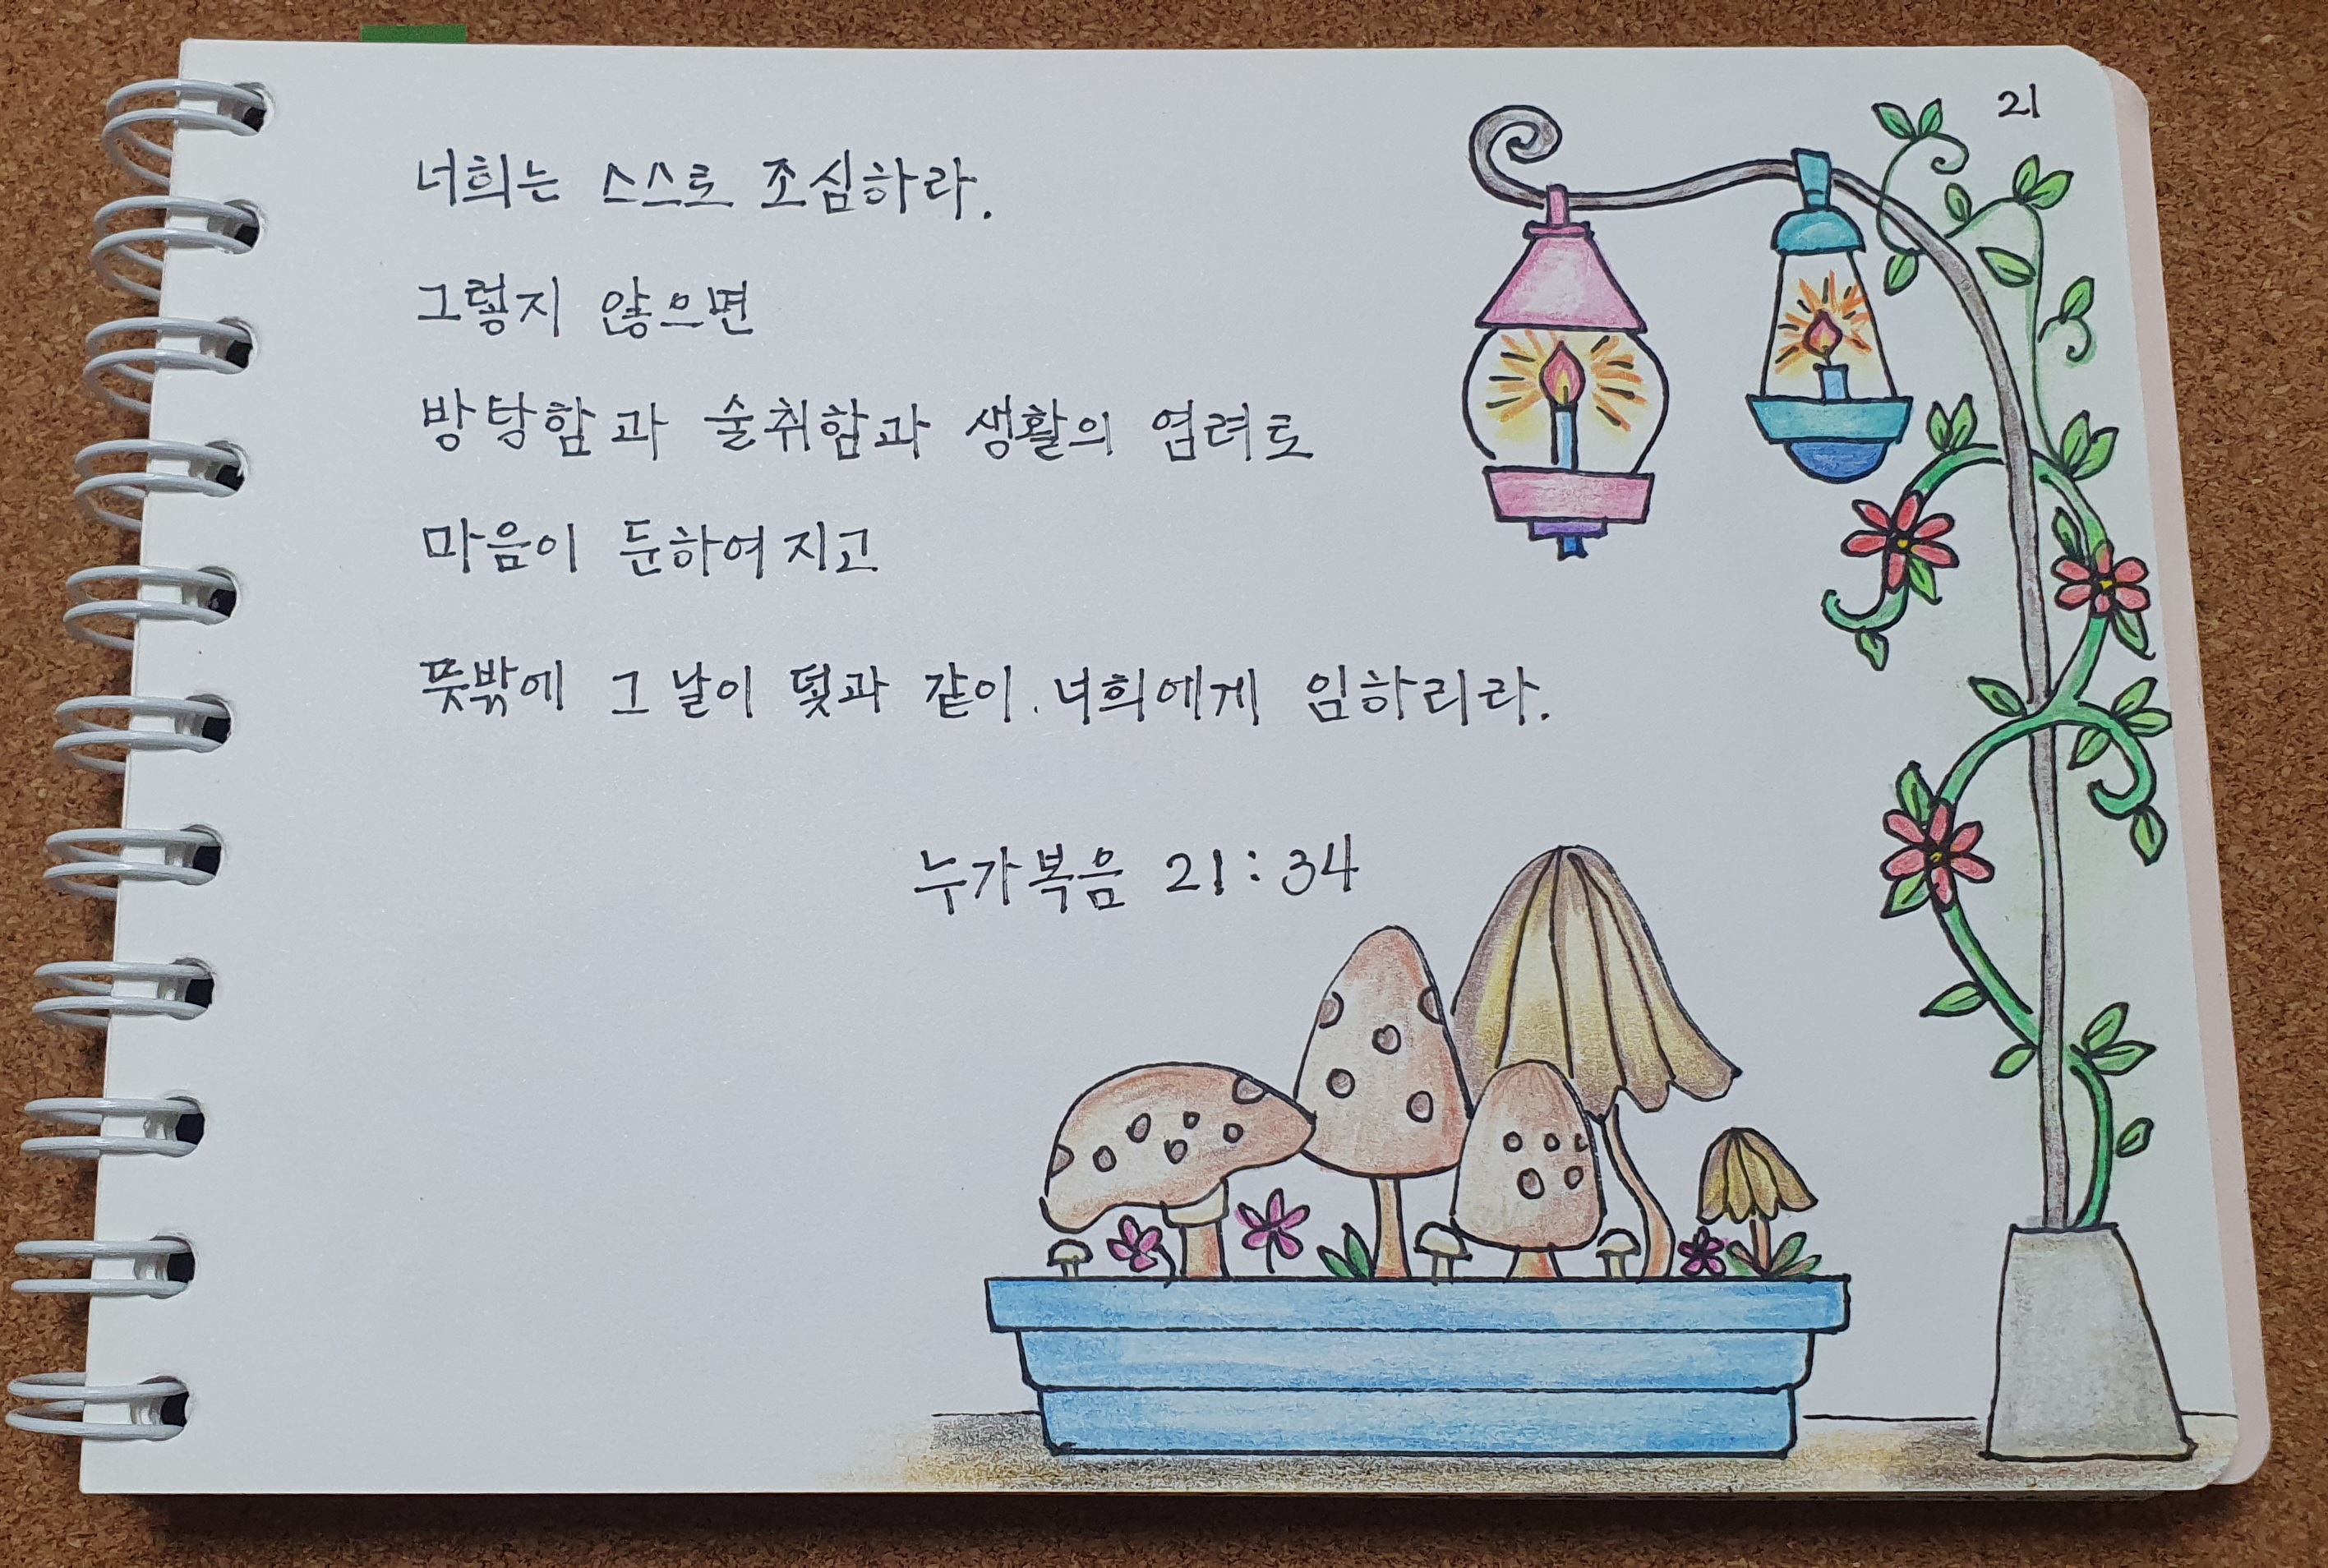 21
너희는 스스로 조심하라.
그렇지 않으면
방탕함과 술취함과 생활의 염려로
마음이 둔하여지고
뜻밖에 그 날이 덫과 같이 너희에게 임하리라.
누가복음 21:34